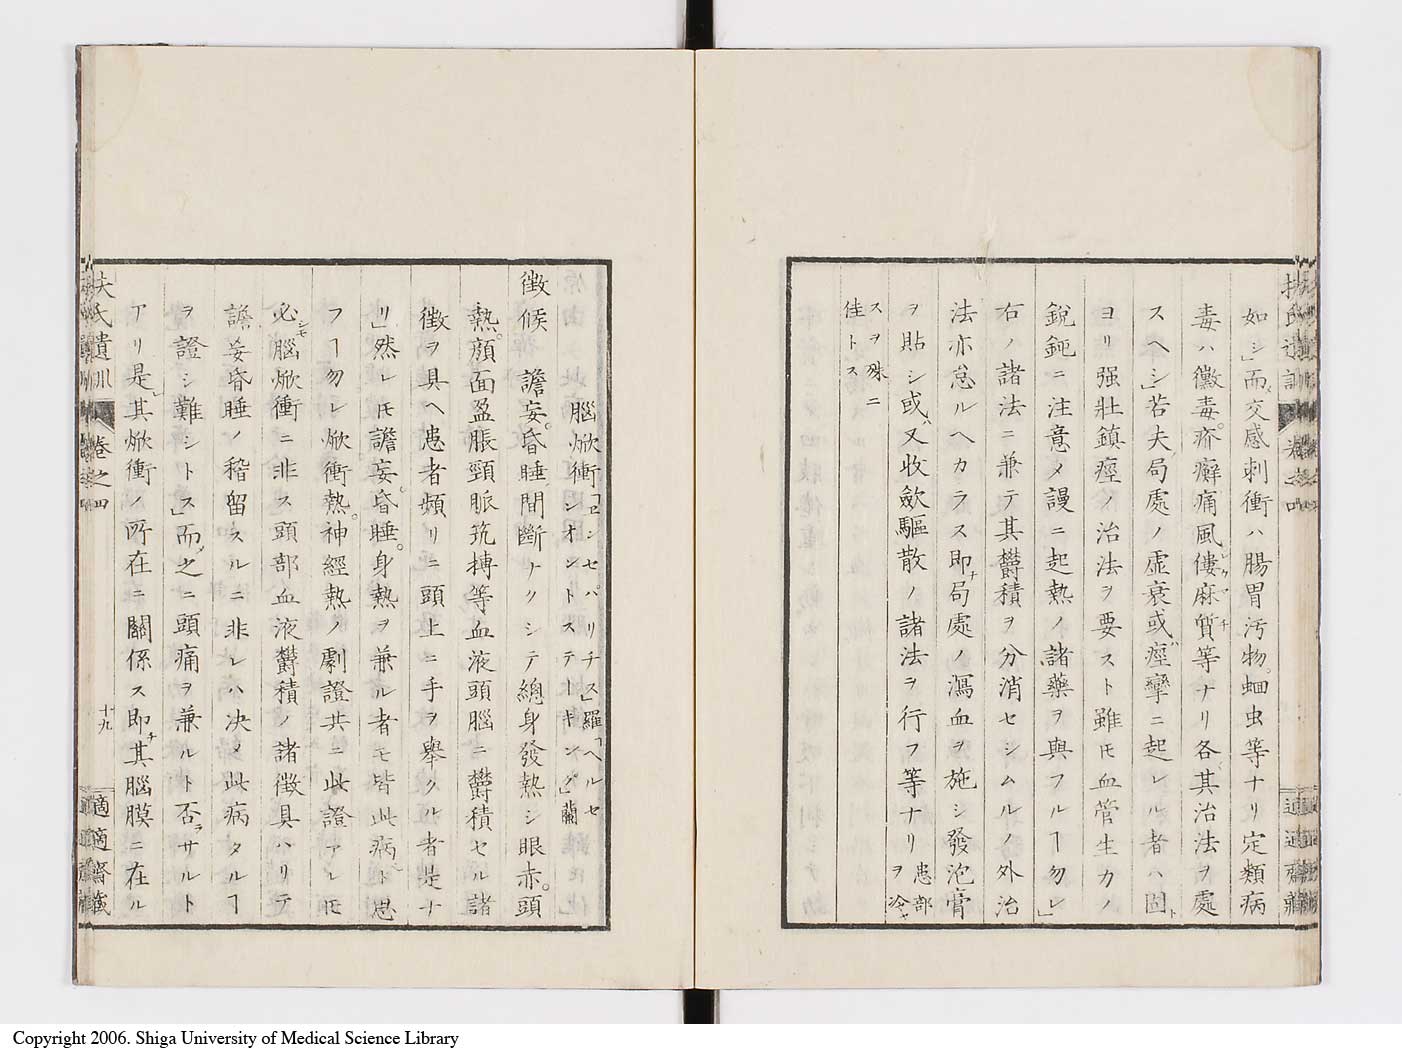 如シ」而メ交感刺衝ハ腸胃汚物。蛔虫等ナリ定類病
毒ハ黴毒。疥癬痛風僂麻質等ナリ各其治法ヲ處
スヘシ」若夫局處ノ虚衰或ハ痙攣ニ起レル者ハ固ト
ヨリ强壯鎮痙ノ治法ヲ要スト雖モ血管生力ノ
銳鈍ニ注意メ謾ニ起熱ノ諸藥ヲ與フルヿ勿レ」
右ノ諸法ニ兼テ其欝積ヲ分消セシムルノ外治
法亦怠ルヘカラス即チ局處ノ瀉血ヲ施シ發泡膏
ヲ貼シ或ハ又收歛驅散ノ諸法ヲ行フ等ナリ 患部ヲ冷ヤ
スヲ殊ニ佳トス
腦焮衝「ヱンセパリチス」羅「ヘルセンオントステーキング」蘭
徴候 譫妄。昏睡間斷ナクシテ總身發熱シ眼赤。頭
熱。顔面盈脹頸脈筑搏等血液頭腦ニ欝積セル諸
徴ヲ具ヘ患者頻リニ頭上ニ手ヲ擧クル者是ナ
リ」然レモ譫妄。昏睡。身熱ヲ兼ル者モ皆此病ト思
フヿ勿レ焮衝熱。神經熱ノ劇證共ニ此證アレモ
必シモ腦焮衝ニ非ス頭部血液欝積ノ諸徴具ハリテ
譫妄昏睡ノ稽留スルニ非レハ决メ此病タルヿ
ヲ證シ難シトス」而メ之ニ頭痛ヲ兼ルト否ヲサルト
アリ是」其焮衝ノ所在ニ關係ス即チ其腦膜ニ在ル
扶氏遺訓 卷之四 十九 適適齋藏